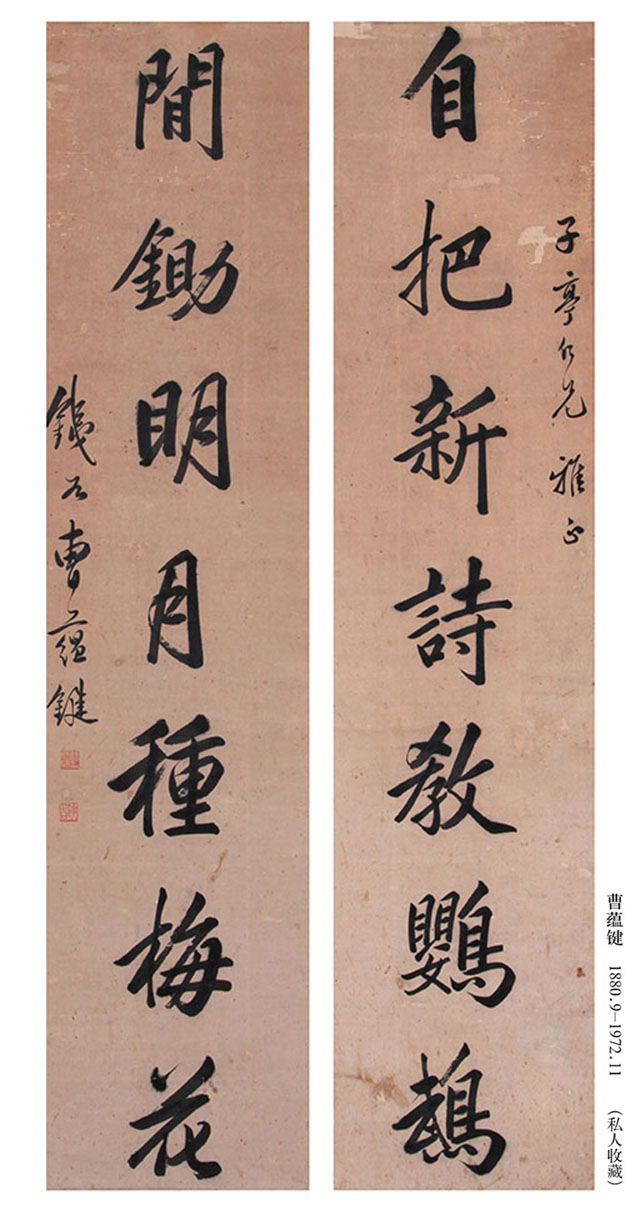 子亭仁兄 雅正
自把新詩教鸚鵡
閒鋤明月種梅花
曹蘊鍵
曹蕴键 1880.9—1972.11 (私人收藏)